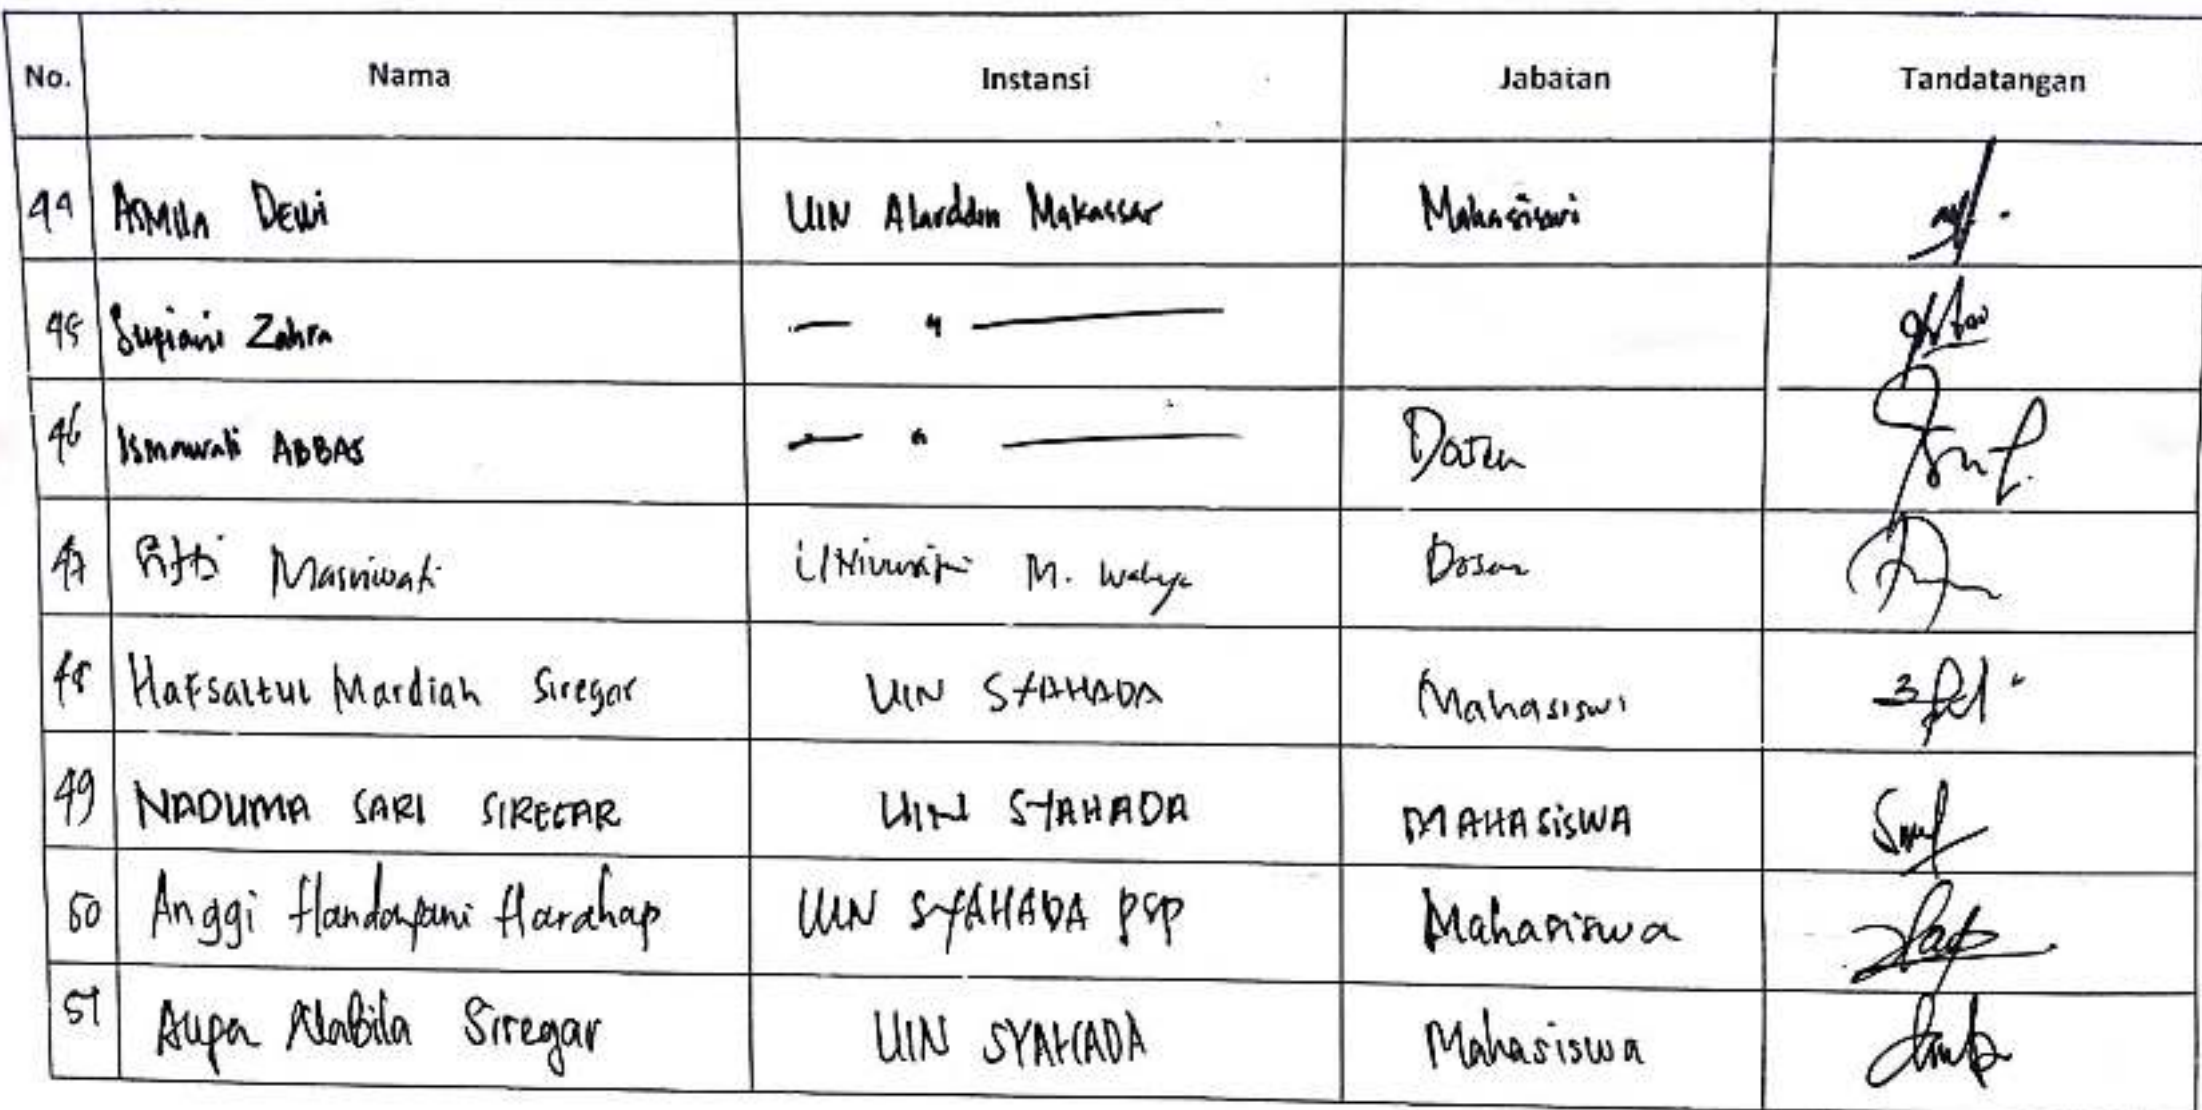 No. Nama Instansi Jabatan Tandatangan
44 Asmila Dewi UIN Alauddin Makassar Mahasiswi
45 Supiani Zahra — " —
46 Ismawati ABBAS — " — Dosen
47 Sitti Masniwati Universitas M. Dosen
48 Hafsattul Mardiah Siregar UIN SYAHADA Mahasiswi
49 NADUMA SARI SIREGAR UIN SYAHADA MAHASISWA
50 Anggi Handayani Harahap UIN SYAHADA PSP Mahasiswa
51 Aupa Nabila Siregar UIN SYAHADA Mahasiswa